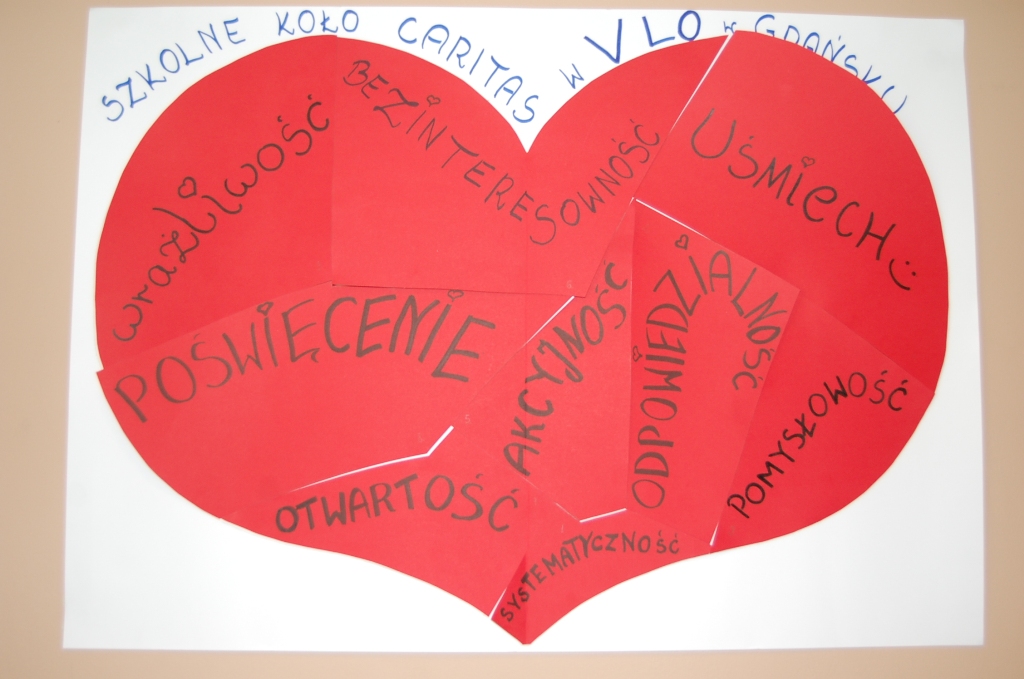 SZKOLNE KOŁO CARITAS W V LO W GDAŃSKU
WRAŻLIWOŚĆ
BEZINTERESOWNOŚĆ
UŚMIECH
POŚWIĘCENIE
AKCYJNOŚĆ
ODPOWIEDZIALNOŚĆ
POMYSŁOWOŚĆ
OTWARTOŚĆ
SYSTEMATYCZNOŚĆ